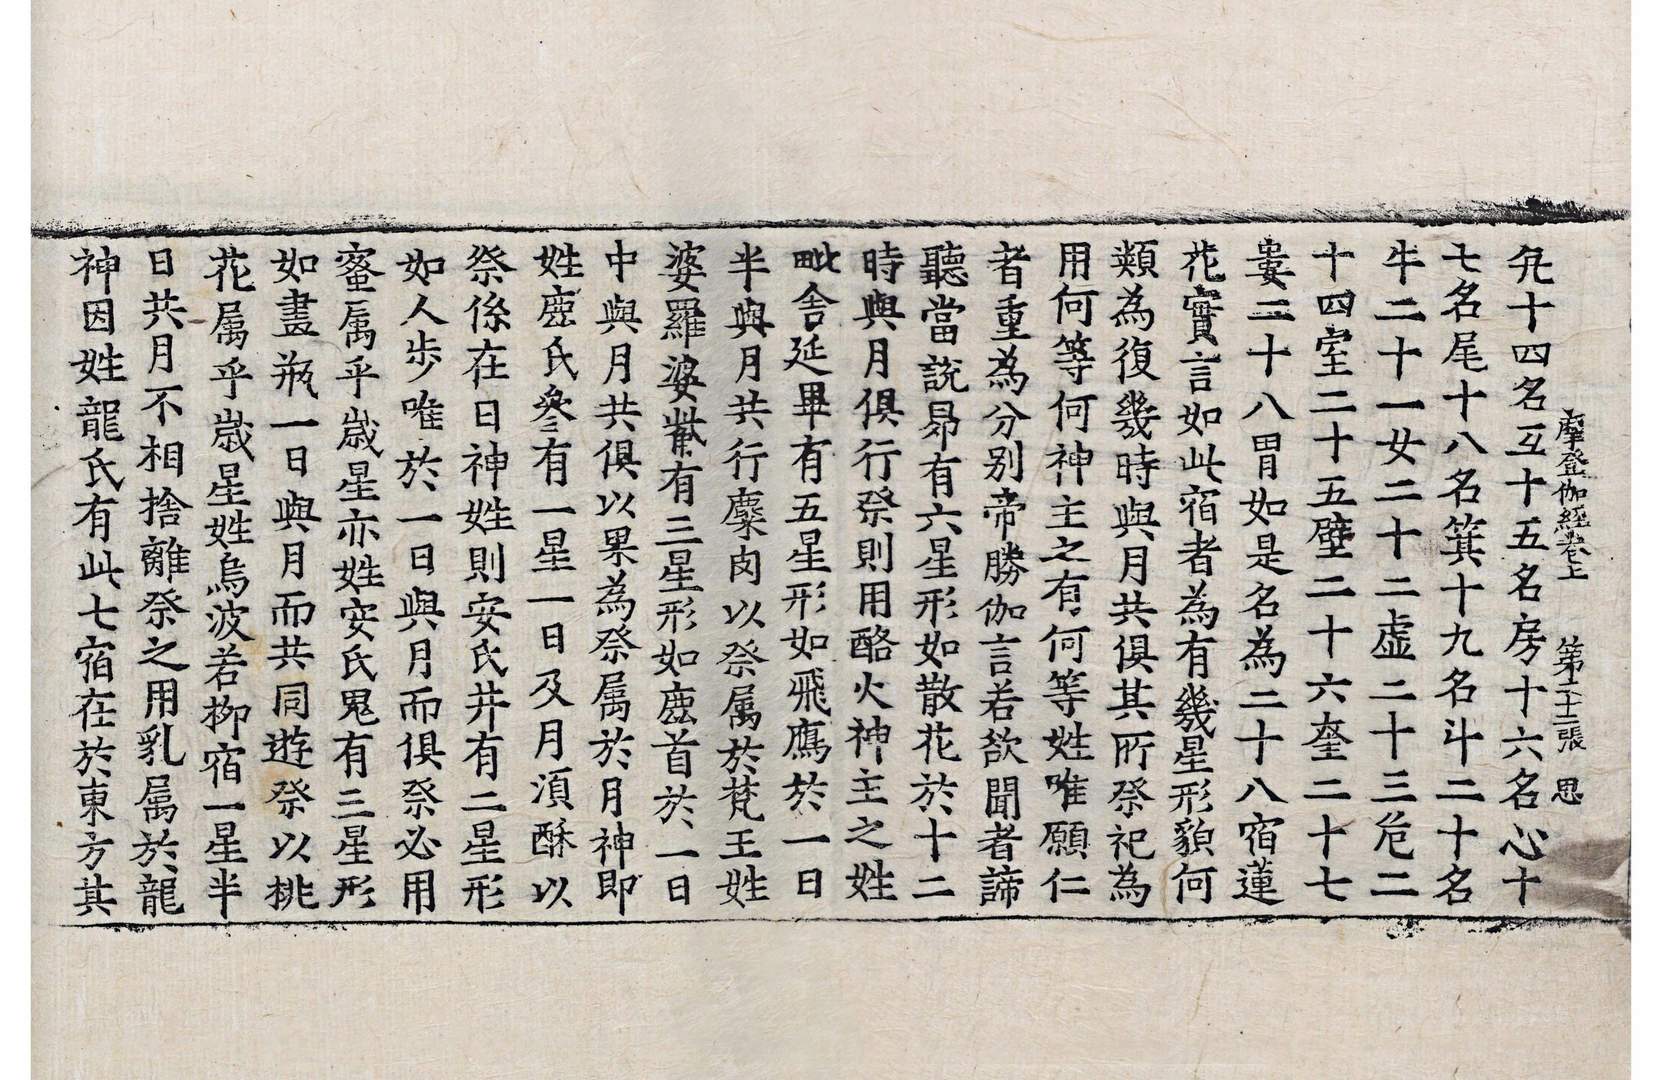 摩登伽經卷上　第二十二張　思
亢十四名互十五名房十六名心十
七名尾十八名箕十九名斗二十名
牛二十一女二十二虛二十三危二
十四室二十五壁二十六奎二十七
婁二十八胃如是名為二十八宿蓮
花實言如此宿者為有幾星形貌何
類為復幾時與月共俱其所祭祀為
用何等何神主之有何等姓唯願仁
者重為分别帝勝伽言若欲聞者諦
聽當說昴有六星形如散花於十二
時與月俱行祭則用酪火神主之姓
毗舍延畢有五星形如飛鴈於一日
半與月共行麋肉以祭属於梵王姓
婆羅婆觜有三星形如鹿首於一日
中與月共俱以果為祭属於月神即
姓鹿氏參有一星一日及月須酥以
祭係在日神姓則安氏井有二星形
如人步唯於一日與月而俱祭必用
蜜属乎歲星亦姓安氏鬼有三星形
如畫瓶一日與月而共同遊祭以桃
花属乎歲星姓烏波若柳宿一星半
日共月不相捨離祭之用乳属於龍
神因姓龍氏有此七宿在於東方其